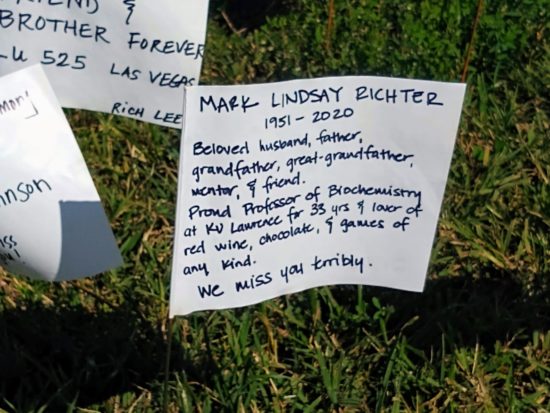 & 
BROTHER FOREVER
LU 525 LAS VEGAS
RICH LEE
MARK LINDSAY RICHTER
1951 - 2020
Beloved husband, father,
grandfather, great-grandfather,
mentor, & friend.
Proud Professor of Biochemistry
at KU Lawrence for 33 yrs & lover of
red wine, chocolate, & games of
any kind.
We miss you terribly.